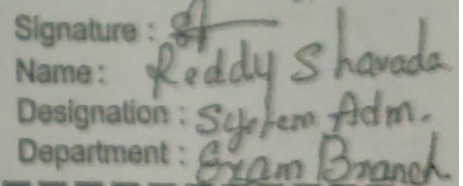 Signature :
Name : Reddy Sharada
Designation : System Adm.
Department : Exam Branch